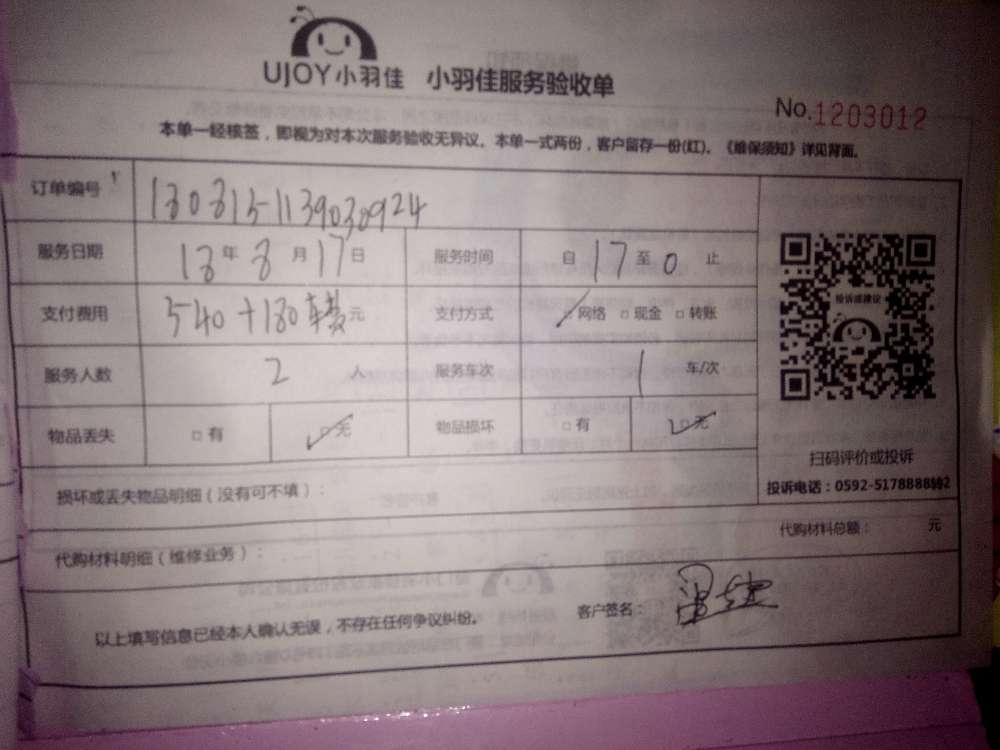 UJOY小羽佳 小羽佳服务验收单
No.1203012
本单一经核签，即视为对本次服务验收无异议。本单一式两份，客户留存一份(红)。《维保须知》详见背面。
订单编号 180815-1139030924
服务日期 18年8月17日 服务时间 自17至0止
支付费用 540+180 元 支付方式 网络 □现金 □转账
服务人数 2人 服务车次 1车/次
物品丢失 □有 ✓无 物品损坏 □有 ✓无
投诉或建议
扫码评价或投诉
投诉电话：0592-5178888
损坏或丢失物品明细（没有可不填）：
代购材料总额： 元
代购材料明细（维修业务）：
以上填写信息已经本人确认无误，不存在任何争议纠纷。
客户签名：